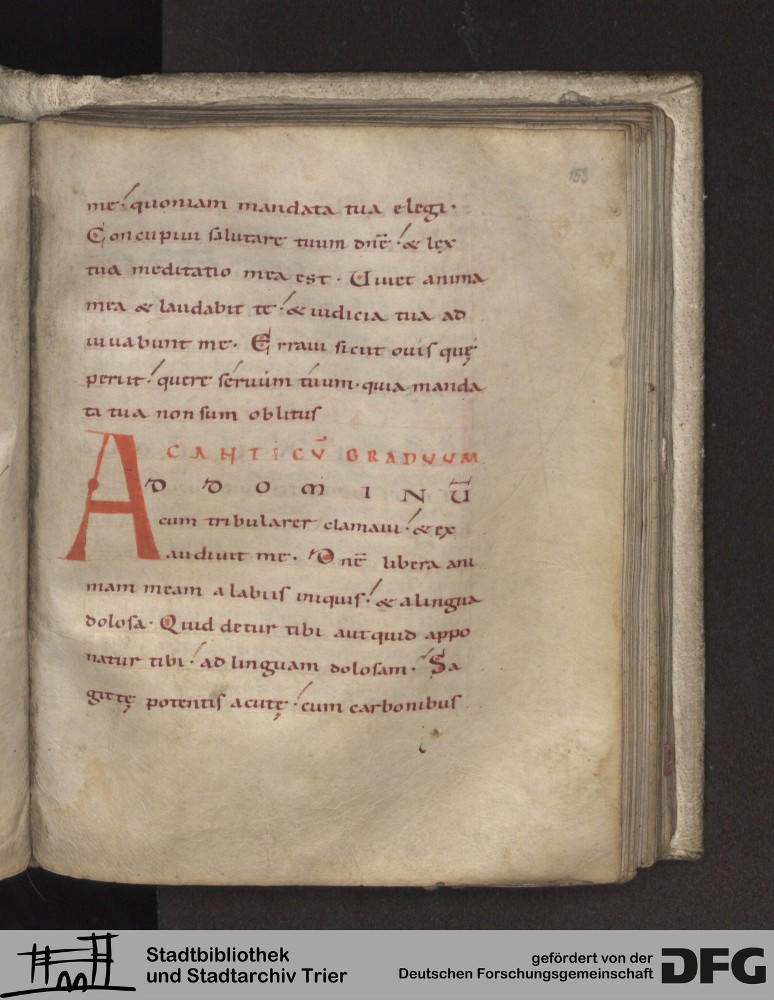 153
me. quoniam mandata tua elegi.
Concupiui salutare tuum dnē. & lex
tua meditatio mea est. Uiuet anima
mea & laudabit te. & iudicia tua ad
iuuabunt me. Erraui sicut ouis quę
periit. quere seruum tuum. quia manda
ta tua non sum oblitus
CANTICŪ GRADUUM
AD DOMINŪ
cum tribularer clamaui. & ex
audiuit me. Dnē libera ani
mam meam a labiis iniquis. & a lingua
dolosa. Quid detur tibi aut quid appo
natur tibi. ad linguam dolosam. Sa
gittę potentis acutę. cum carbonibus
Stadtbibliothek
und Stadtarchiv Trier
gefördert von der
Deutschen Forschungsgemeinschaft DFG